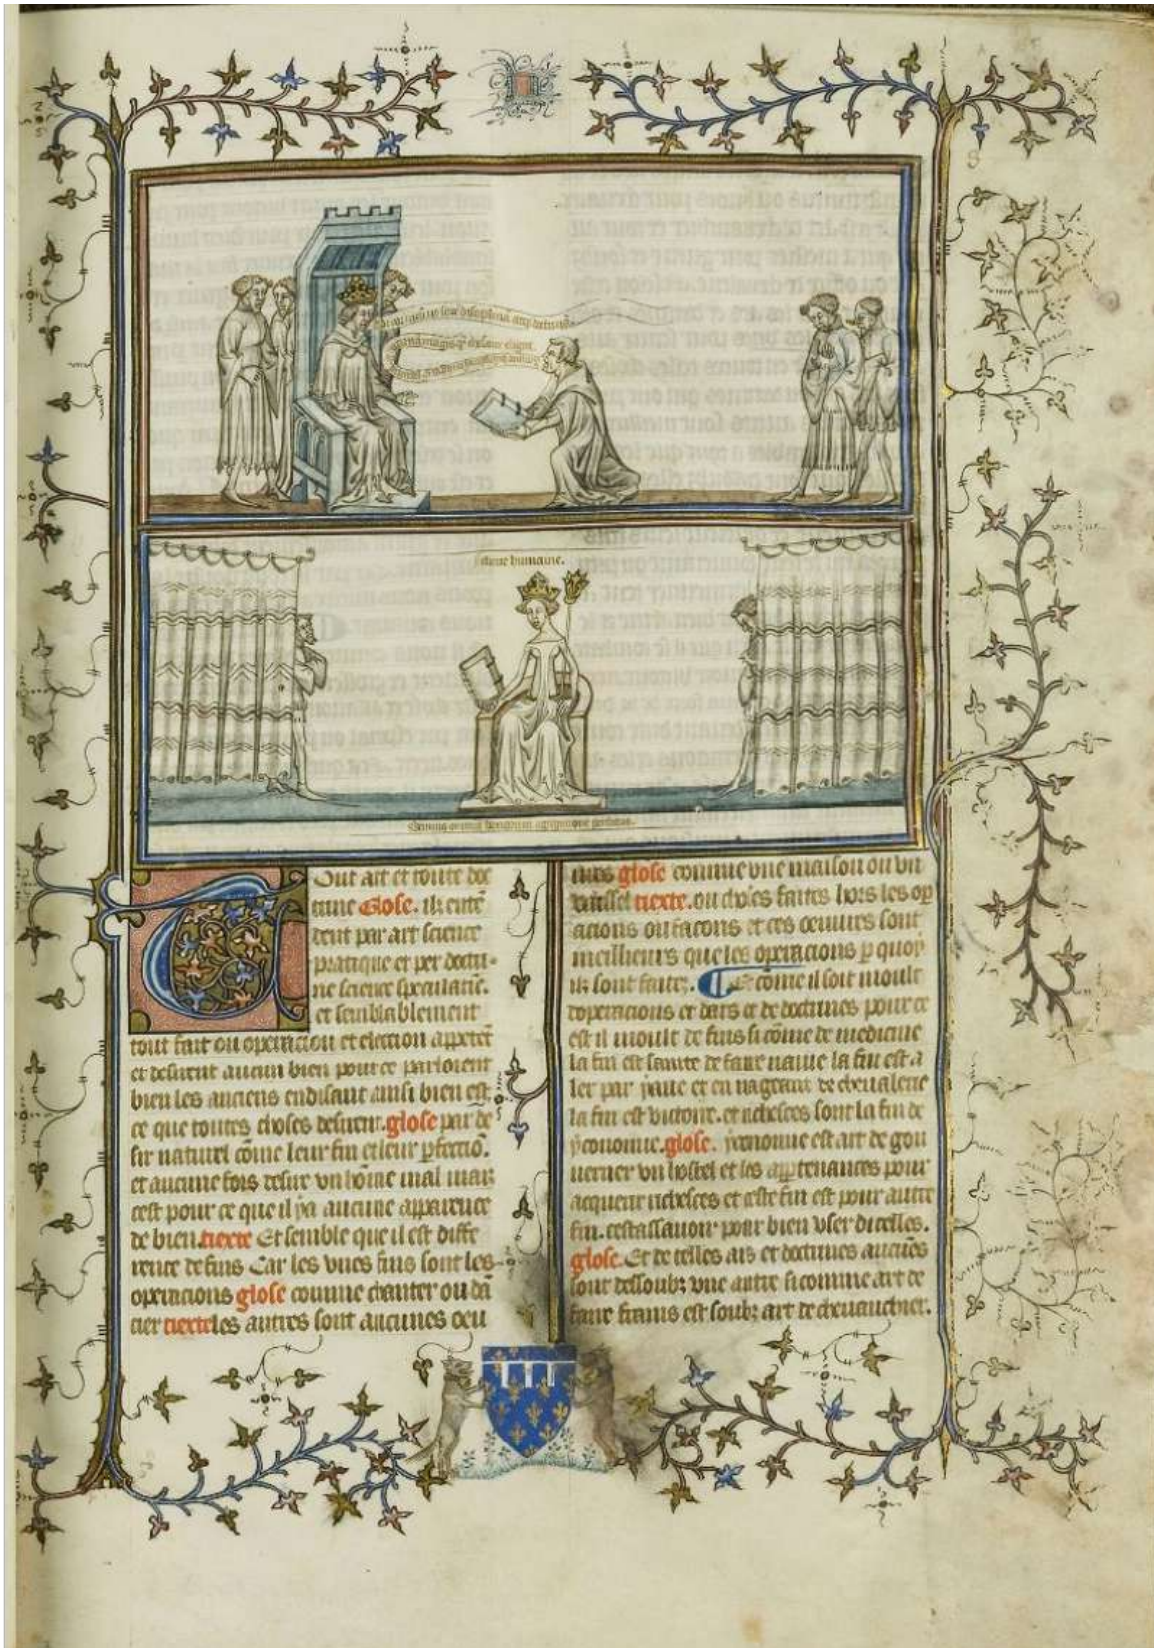 felicite humaine.
Tout art et toute doc
trine Glose. ilz ente͂
dent par art science
pratique et par doctri-
ne science speculative.
et semblablement
tout fait ou operacion et election appete͂t
et desirent aucun bien pour ce parloient
bien les anciens en disant ainsi bien est
ce que toutes choses desirent. glose par de
sir naturel co͂me leur fin et leur p̱feccio͂.
et aucune fois desire vn ho͂me mal mais
cest pour ce que il y a aucune apparence
de bien. tiexte Et semble que il est diffe
rence de fins Car les vnes fins sont les
operacions glose comme chanter ou da͂
cier tiexte les autres sont aucunes oeu
ures glose comme vne maison ou vn
vaissel tiexte. ou choses faites hors les op̱
acions ou facons et ces oeuures sont
meilleurs que les operacions p̱ quoy
ilz sont faites. Et co͂me il soit moult
doperacions et dars et de doctrines pour ce
est il moult de fins si co͂me de medicine
la fin est sante de faire nauie la fin est a
ler par yaue et en nagant de cheualerie
la fin est victoire. et richesces sont la fin de
yconomie. glose. yconomie est art de gou
uerner vn hostel et les app̱tenances pour
acquerir richesces et ceste fin est pour autre
fin. cest assauoir pour bien vser dicelles.
glose. Et de telles ars et doctrines aucu͂es
sont dessoubz vne autre si comme art de
faire frains est soubz art de cheuauchier.